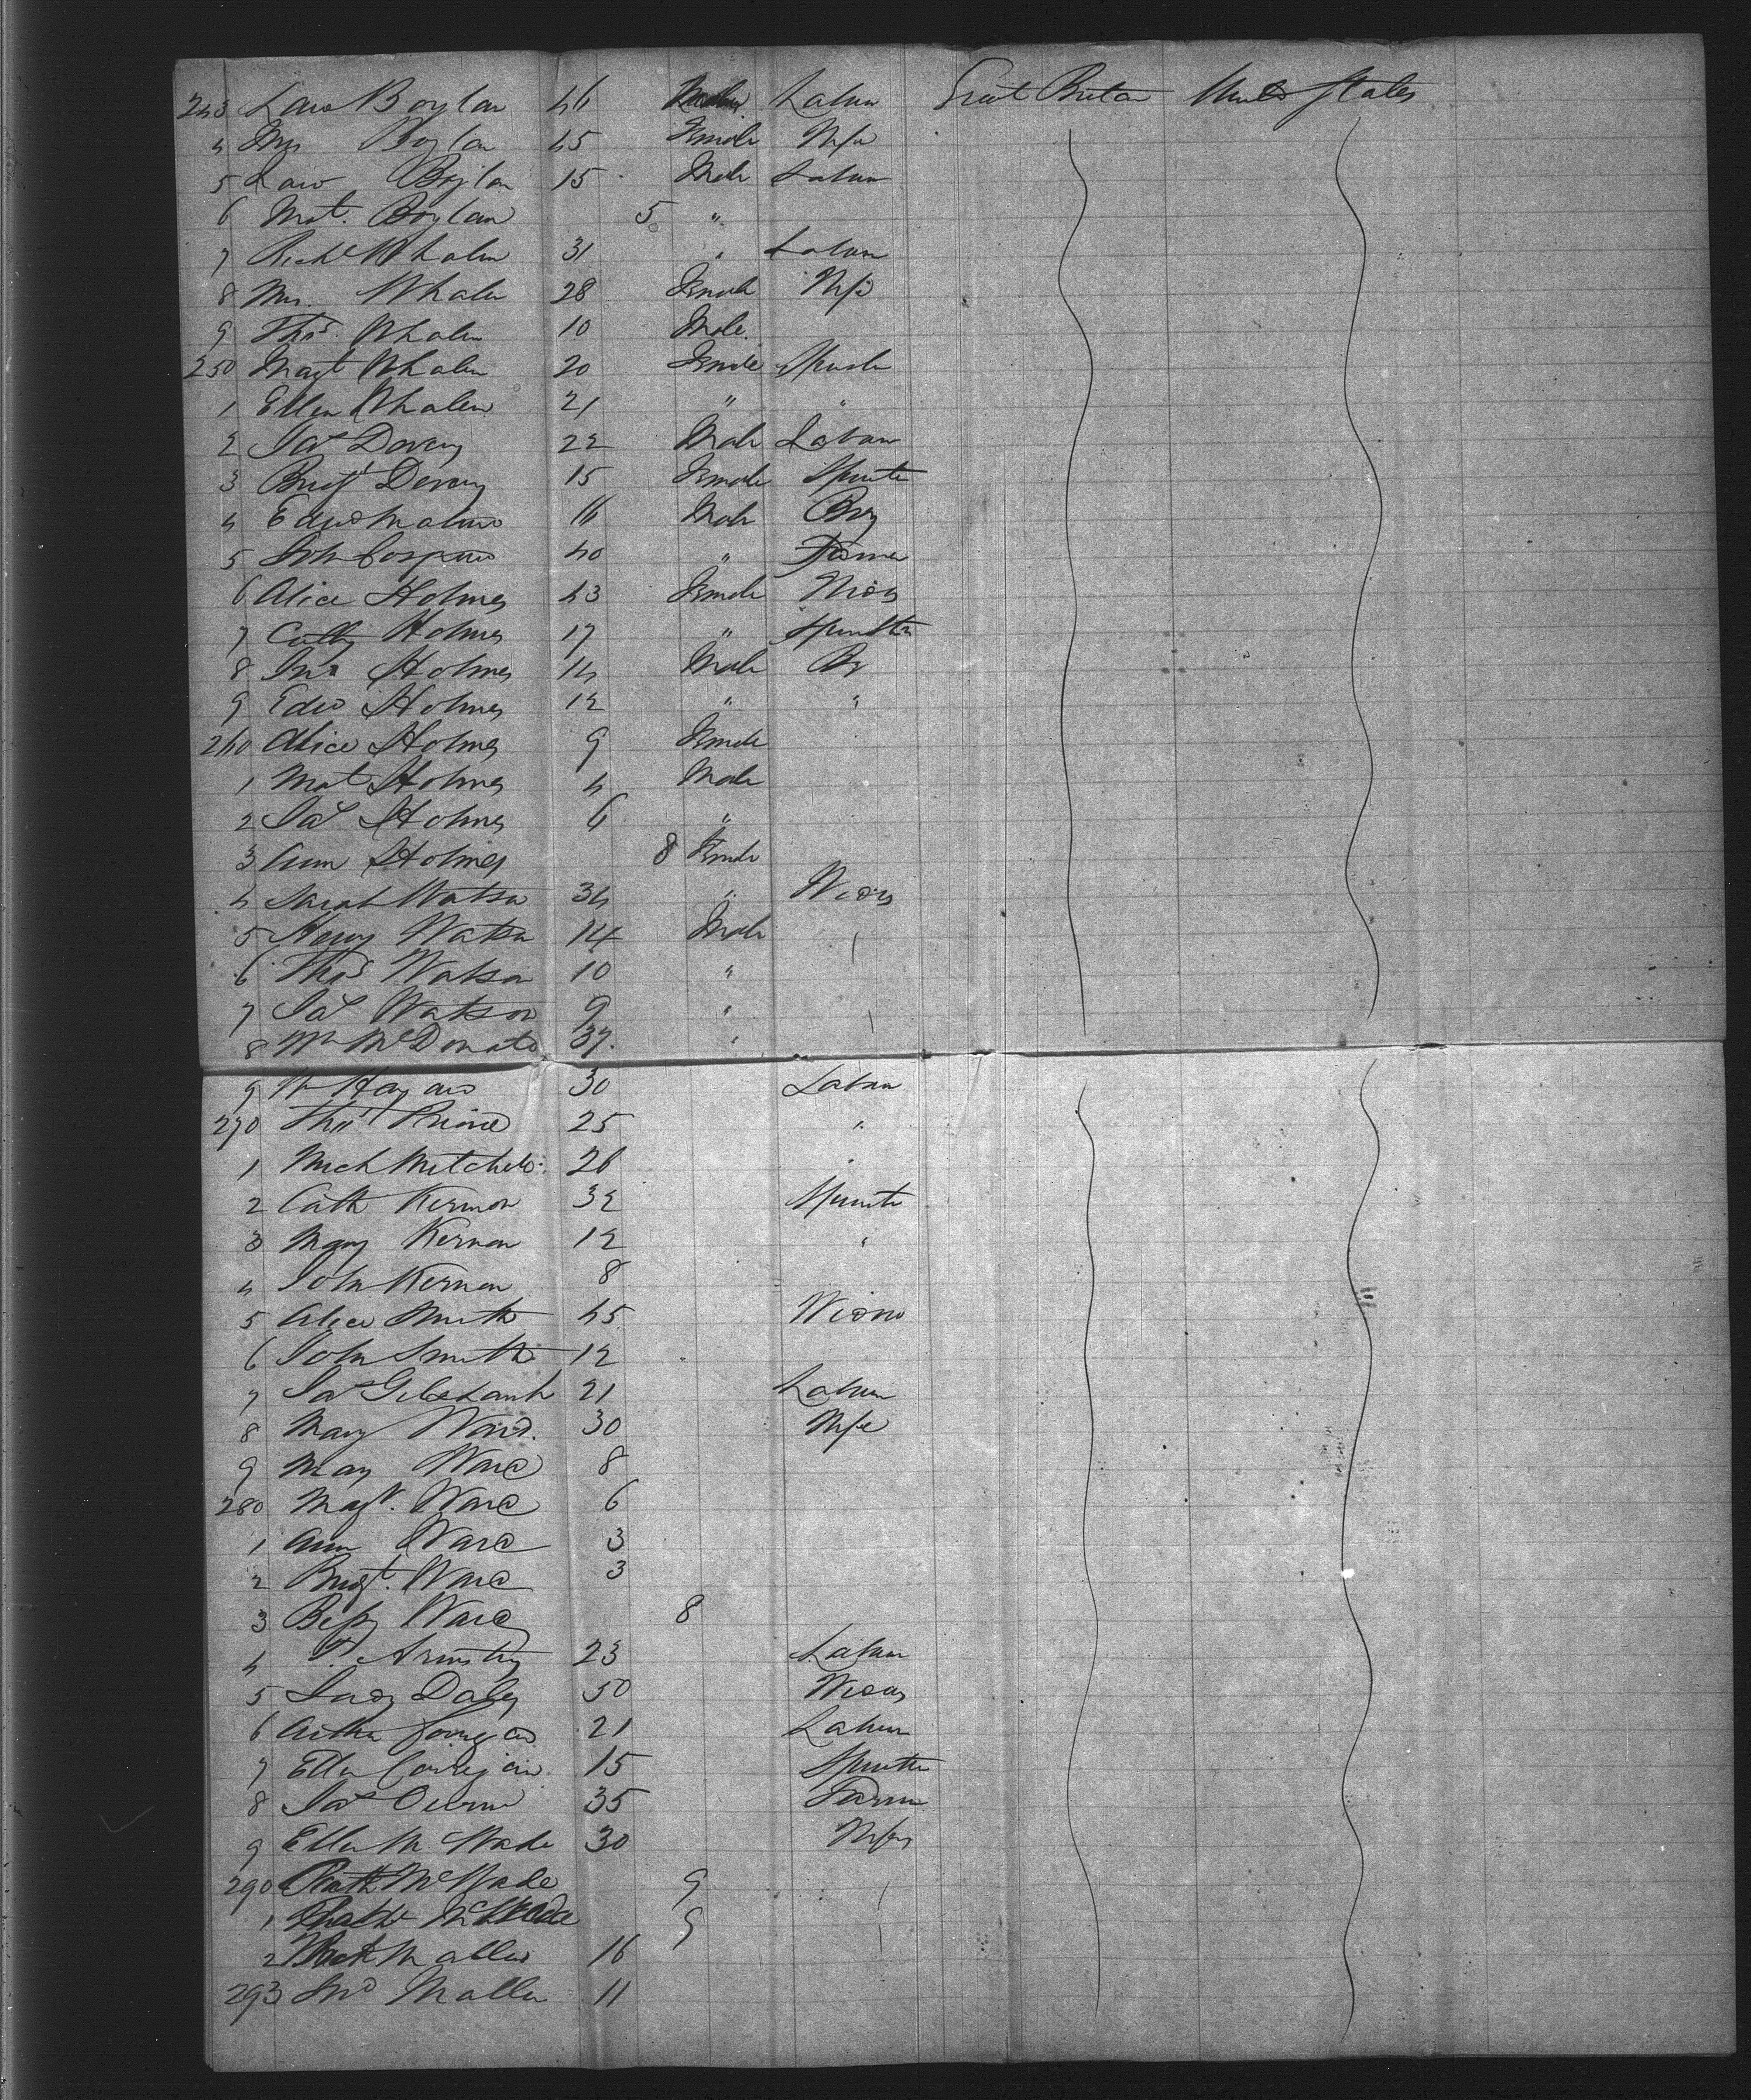 243 Law Boylan 46 Male Labur Great Britan United States
4 Mrs Boylan 45 Female Wife
5 Law Boylan 15 Male Labur
6 Mat. Boylan 5 "
7 Richd Whalen 31 " Labur
8 Mrs. Whalen 28 Female Wife
9 Thos Whalen 10 Male
250 Magt Whalen 20 Female Spinster
1 Ellen Whalen 21 " "
2 Jas Devery 22 Male Labur
3 Bridgt Devery 15 Female Spinster
4 Edwd 16 Male Boy
5 John 40 " Farmer
6 Alice Holmes 43 Female Widow
7 Cath Holmes 17 " Spinster
8 Jno Holmes 14 Male Boy
9 Edw Holmes 12 " "
260 Alice Holmes 9 Female
1 Mat Holmes 4 Male
2 Jas Holmes 6 "
3 Ann Holmes 8 Female
4 Sarah Watson 34 " Widow
5 Henry Watson 14 Male
6 Thos Watson 10 "
7 Jas Watson 9 "
8 Wm McDonald 37 "
9 30 Labur
270 Thos 25 "
1 Mich Mitchell 26 "
2 Cath Kernon 32 Spinster
3 Mary Kernon 12 "
4 John Kernon 8
5 Alice Smith 45 Widow
6 John Smith 12
7 Jas 21 Labur
8 Mary Ward 30 Wife
9 Mary Ward 8
280 Magt. Ward 6
1 Ann Ward 3
2 Bridgt. Ward 3
3 Bessy Ward 8
4 23 Labur
5 Daley 50 Widow
6 Arthur Corrigan 21 Labur
7 Ellen Corrigan 15 Spinster
8 Jas 35 Farmer
9 Ellen McWade 30 Wife
290 McWade 9
1 McWade 9
2 Mallen 16
293 Jno Mallen 11